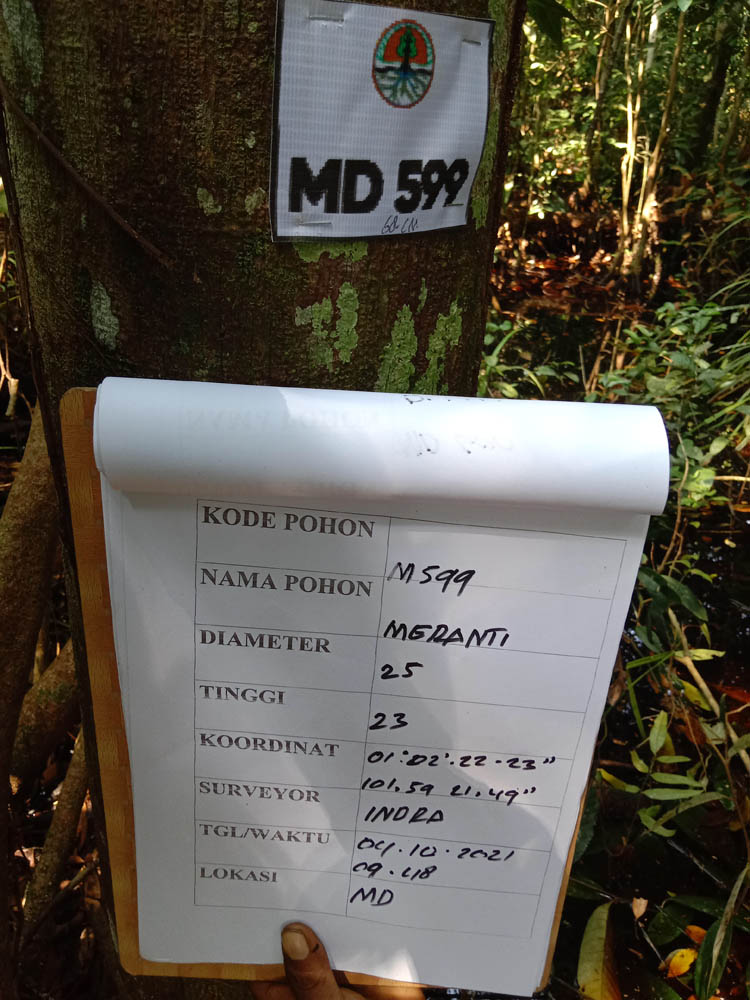 MD 599
60 CM
KODE POHON
M599
NAMA POHON
MERANTI
DIAMETER
25
TINGGI
23
KOORDINAT
01°02'.22.23"
101.59 21.49"
SURVEYOR
INDRA
TGL/WAKTU
04.10.2021
09.48
LOKASI
MD